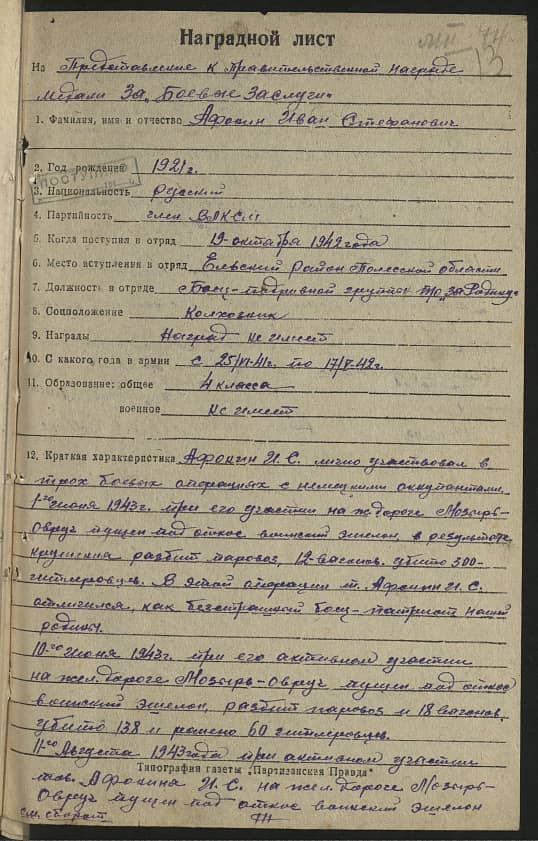 Наградной лист
На Представление к Правительственной награде
медали За „Боевые Заслуги“
1. Фамилия, имя и отчество Афонин Иван Степанович
2. Год рождения 1921 г.
3. Национальность русский
4. Партийность член ВЛКСМ
5. Когда поступил в отряд 19-октября 1942 года
6. Место вступления в отряд Ельский район Полесской области
7. Должность в отряде Боец-подрывной группы п/о „За Родину“
8. Соцположение Колхозник
9. Награды Наград не имеет
10. С какого года в армии с 25/VI-41г. по 17/X-42г.
11. Образование: общее 4 класса
военное не имеет
12. Краткая характеристика Афонин И.С. лично участвовал в
трох боевых операциях с немецкими оккупантами.
1го июня 1943г. при его участии на ж. дороге Мозырь-
Овруч пущен под откос воинский эшелон, в результате
крушения разбит паровоз, 12-вагонов. убито 300-
гитлеровцев. В этой операции т. Афонин И.С.
отличился, как безстрашный боец-патриот нашей
родины.
10-го июня 1943г. при его активном участии
на жел. дороге Мозырь-Овруч пущен под откос
воинский эшелон, разбит паровоз и 18 вагонов,
убито 138 и ранено 60 гитлеровцев.
11го Августа 1943 года при активном участии
Типография газеты „Партизанская Правда“
тов. Афонина И.С. на жел. дороге Мозырь-
Овруч пущен под откос воинский эшелон
см. оборот.